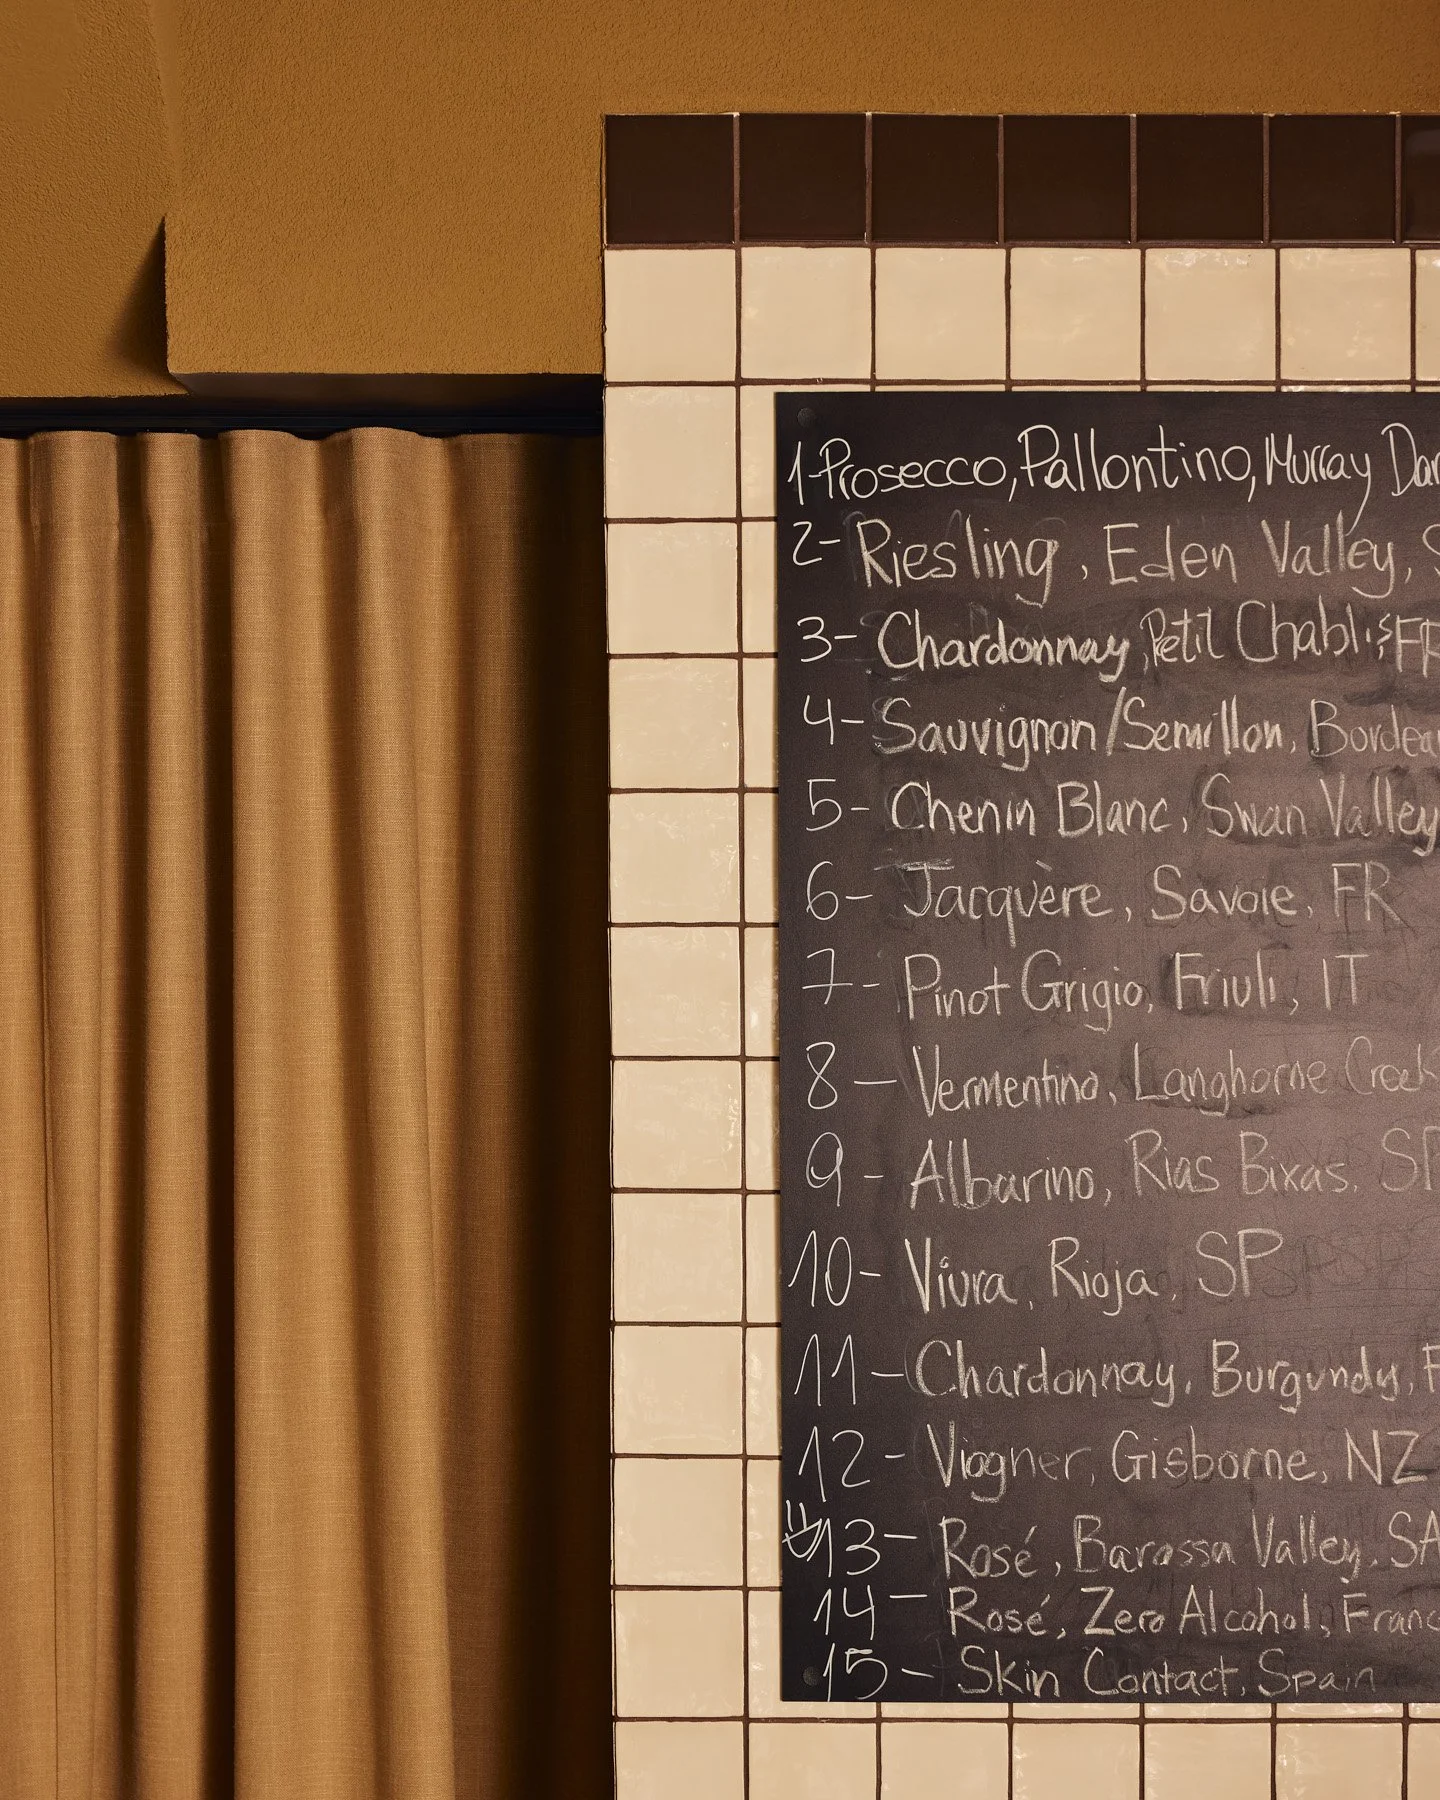 1-Prosecco, Pallontino, Murray Dar
2- Riesling, Eden Valley, S
3- Chardonnay, Petit Chablis, FR
4- Sauvignon/Semillon, Bordeau
5- Chenin Blanc, Swan Valley
6- Jacquère, Savoie, FR
7- Pinot Grigio, Friuli, IT
8- Vermentino, Langhorne Creek
9- Albarino, Rias Bixas, SP
10- Viura, Rioja, SP
11- Chardonnay, Burgundy, F
12- Viogner, Gisborne, NZ
13- Rosé, Barossa Valley, SA
14- Rosé, Zero Alcohol, Franc
15- Skin Contact, Spain